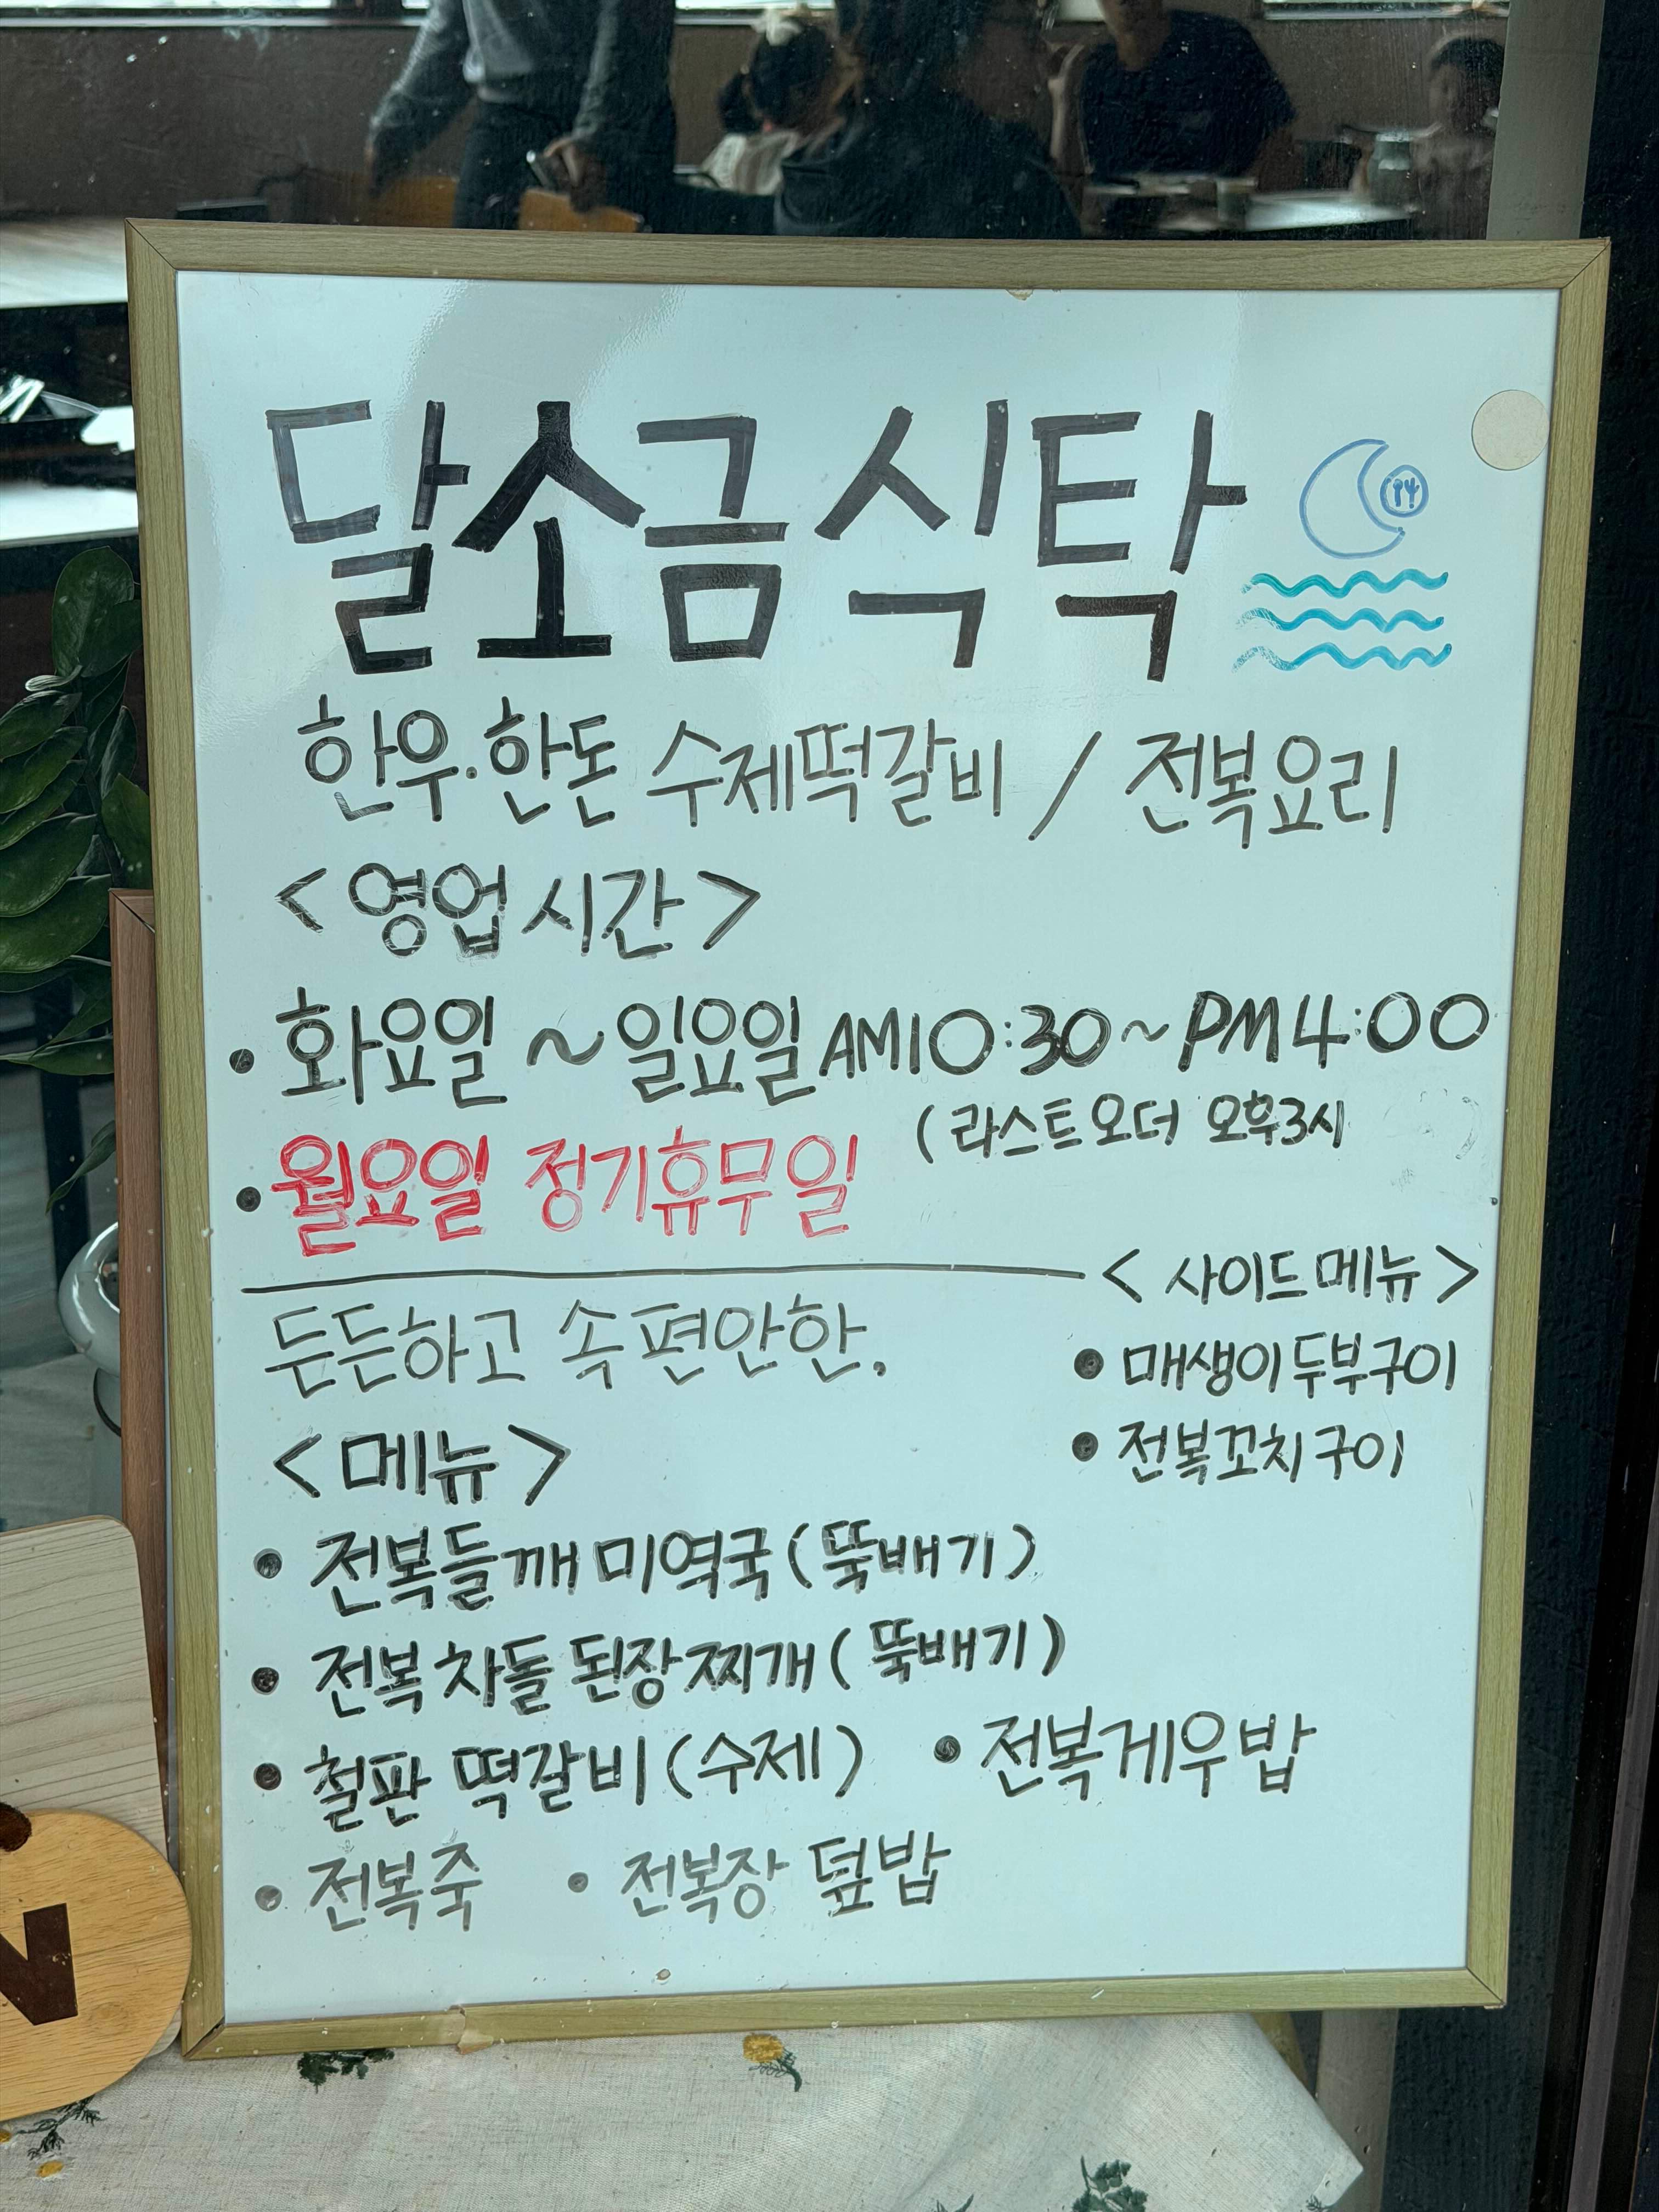 달소금식탁
한우·한돈 수제떡갈비 / 전복요리
<영업시간>
• 화요일 ~ 일요일 AM10:30 ~ PM4:00
(라스트오더 오후3시
• 월요일 정기휴무일
든든하고 속 편안한.
<메뉴>
• 전복들깨미역국(뚝배기)
• 전복차돌 된장찌개(뚝배기)
• 철판 떡갈비(수제) • 전복게우밥
• 전복죽 • 전복장 덮밥
<사이드메뉴>
• 매생이두부구이
• 전복꼬치구이
N